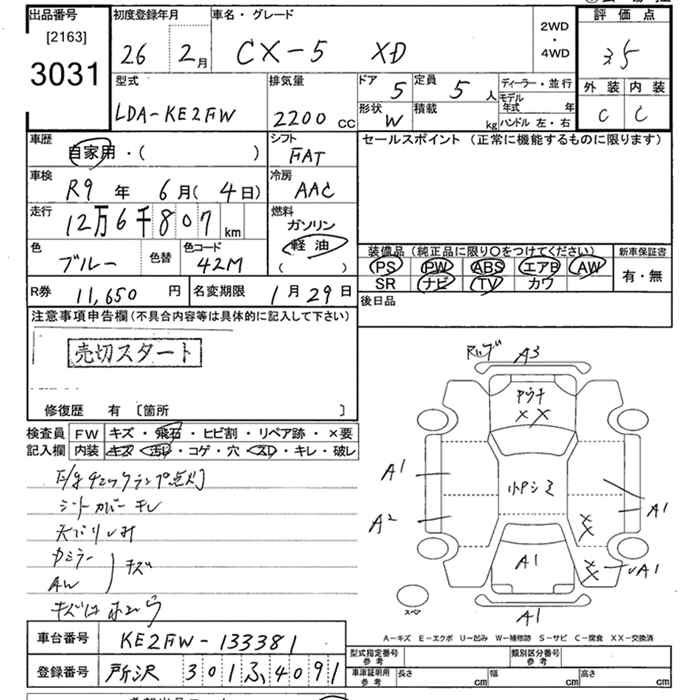 出品番号
[2163]
3031
初度登録年月
26 2月
車名・グレード
CX-5 XD
2WD
・
4WD
評価点
3.5
外装 内装
C C
型式
LDA-KE2FW
排気量
2200 cc
ドア 5
定員 5人
形状 W
積載 kg
ディーラー・並行
モデル年式 年
ハンドル 左・右
車歴
自家用・( )
シフト
FAT
セールスポイント (正常に機能するものに限ります)
車検
R9年 6月(4日)
冷房
AAC
走行
12万6千807 km
燃料
ガソリン
軽油
( )
色
ブルー
色替
色コード
42M
装備品 (純正品に限り○をつけてください)
新車保証書
PS PW ABS エアB AW
SR ナビ TV カワ
有・無
R券 11,650円
名変期限 1月29日
後日品
注意事項申告欄(不具合内容等は具体的に記入して下さい)
売切スタート
修復歴 有 [箇所 ]
検査員
記入欄
FW キズ・飛石・ヒビ割・リペア跡・×要
内装 キズ・汚れ・コゲ・穴・スレ・キレ・破レ
E/gチェックランプ点灯
シートカバー キレ
天バリしみ
Fミラー
AW
キズ
A3
XX
A1
A2
A1
XX
XX
A1
A1
A1
スペア
A-キズ E-エクボ U-凹み W-補修跡 S-サビ C-腐食 XX-交換済
車台番号
KE2FW-133381
登録番号
所沢 301 ふ 4091
型式指定番号
参考
類別区分番号
参考
車庫証明用
参考
長さ
幅
高さ
cm